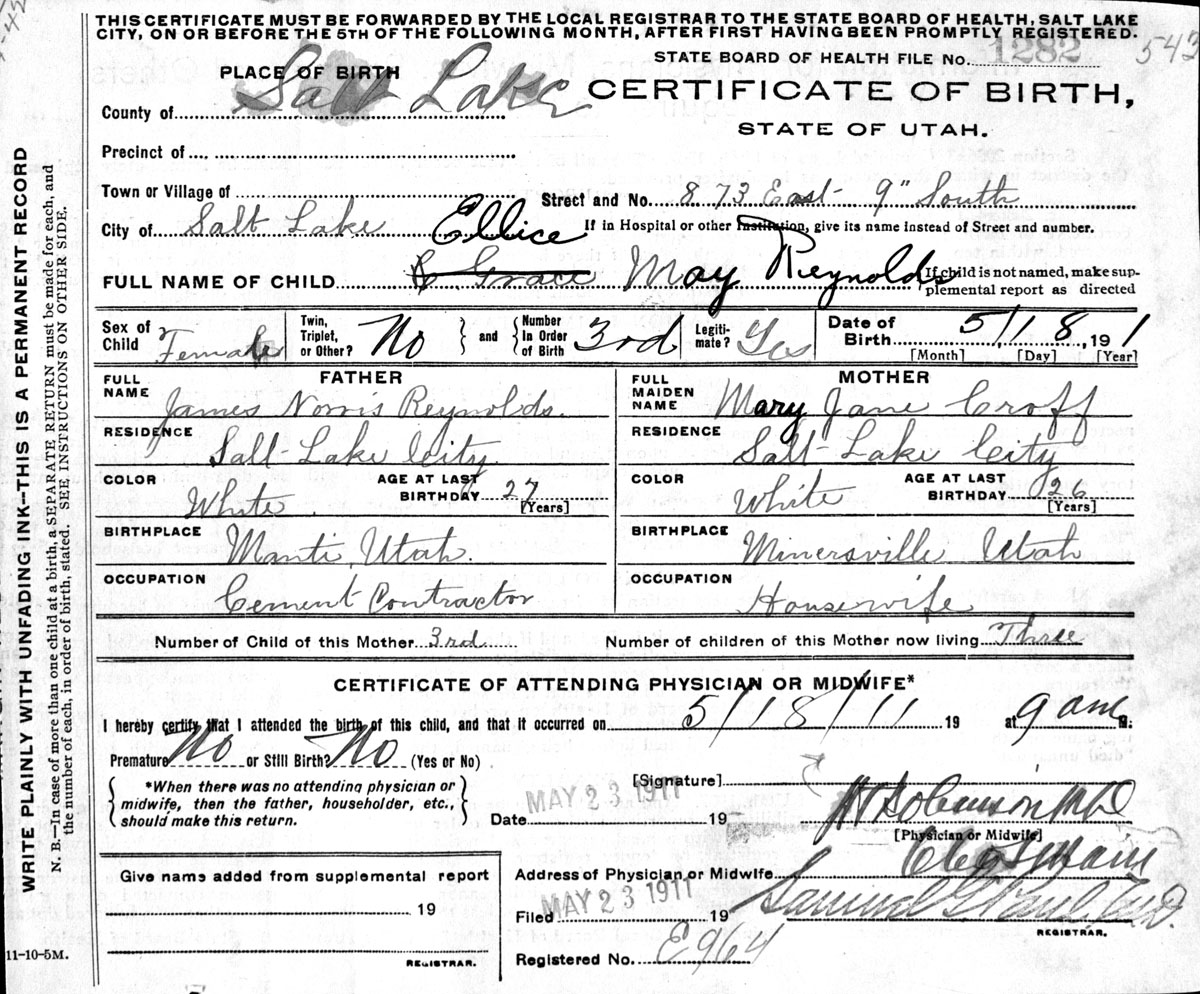 THIS CERTIFICATE MUST BE FORWARDED BY THE LOCAL REGISTRAR TO THE STATE BOARD OF HEALTH, SALT LAKE
CITY, ON OR BEFORE THE 5TH OF THE FOLLOWING MONTH, AFTER FIRST HAVING BEEN PROMPTLY REGISTERED.
STATE BOARD OF HEALTH FILE No. 1282 542
PLACE OF BIRTH
CERTIFICATE OF BIRTH,
County of Salt Lake
STATE OF UTAH.
Precinct of
Town or Village of
Street and No. 873 East 9" South
City of Salt Lake
If in Hospital or other Institution, give its name instead of Street and number.
Ellice
FULL NAME OF CHILD Grace May Reynolds
If child is not named, make sup-
plemental report as directed
Sex of Child Female
Twin, Triplet, or Other? No
and
Number In Order of Birth 3rd
Legiti-mate? Yes
Date of Birth 5/18, 191 1
[Month] [Day] [Year]
FATHER
FULL NAME James Norris Reynolds.
RESIDENCE Salt Lake City
COLOR White.
AGE AT LAST BIRTHDAY 27 [Years]
BIRTHPLACE Manti, Utah.
OCCUPATION Cement Contractor
MOTHER
FULL MAIDEN NAME Mary Jane Croff
RESIDENCE Salt Lake City
COLOR White
AGE AT LAST BIRTHDAY 26 [Years]
BIRTHPLACE Minersville Utah
OCCUPATION Housewife
Number of Child of this Mother 3rd
Number of children of this Mother now living Three
CERTIFICATE OF ATTENDING PHYSICIAN OR MIDWIFE*
I hereby certify that I attended the birth of this child, and that it occurred on 5/18/11 19 at 9 am M:
Premature No or Still Birth? No (Yes or No)
*When there was no attending physician or
midwife, then the father, householder, etc.,
should make this return.
[Signature]
Date MAY 23 1911 19
M D
[Physician or Midwife]
Address of Physician or Midwife
Filed MAY 23 1911 19
Samuel G
REGISTRAR.
Registered No. E964
Give name added from supplemental report
19
REGISTRAR.
11-10-5M.
WRITE PLAINLY WITH UNFADING INK--THIS IS A PERMANENT RECORD
N. B.—In case of more than one child at a birth, a SEPARATE RETURN must be made for each, and
the number of each, in order of birth, stated. SEE INSTRUCTIONS ON OTHER SIDE.